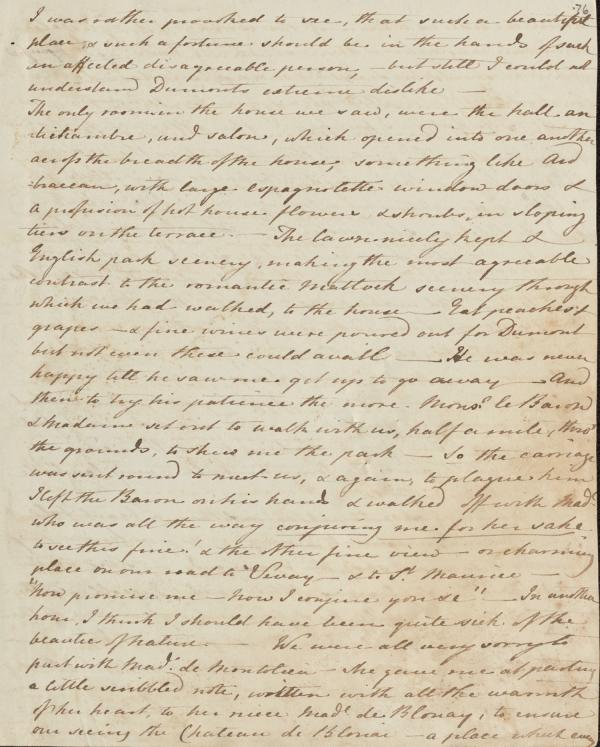 76
I was rather provoked to see, that such a beautiful
place & such a fortune should be in the hands of such
an affected disagreeable person, – but still I could not
understand Dumonts extreme dislike –
The only rooms in the house we saw, were the hall an
-tichambre, and salon, which opened into one another
across the breadth of the house, something like Ard
-braccan, with large espagnolette window doors &
a profusion of hot house flowers & shrubs, in sloping
tiers on the terrace. – The lawn nicely kept &
English park scenery, making the most agreeable
contrast to the romantic Matlock scenery through
which we had walked, to the house – Eat peaches &
grapes – & fine wines were poured out for Dumont
but not even these could avail – He was never
happy till he saw me get up to go away – And
then to try his patience the more Monsr. le Baron
& Madame set out to walk with us, half a mile, thro'
the grounds, to shew me the park – So the carriage
was sent round to meet us, & again, to plague him
I left the Baron on his hands & walked off with Madᵉ
who was all the way conjuring me for her sake
to see this fine! & the other fine view – or charming
place on our road to Vevay – & to St. Maurice –
"Now promise me – Now I conjure you &c" – In another
hour, I think I should have been quite sick of the
beautie of nature. – We were all very sorry to
part with Madᵉ. de Montolieu – She gave me at parting
a little scribbled note, written with all the warmth
of her heart, to her niece Madᵉ. de Blonay, to ensure
our seeing the Chateau de Blonai – a place which every